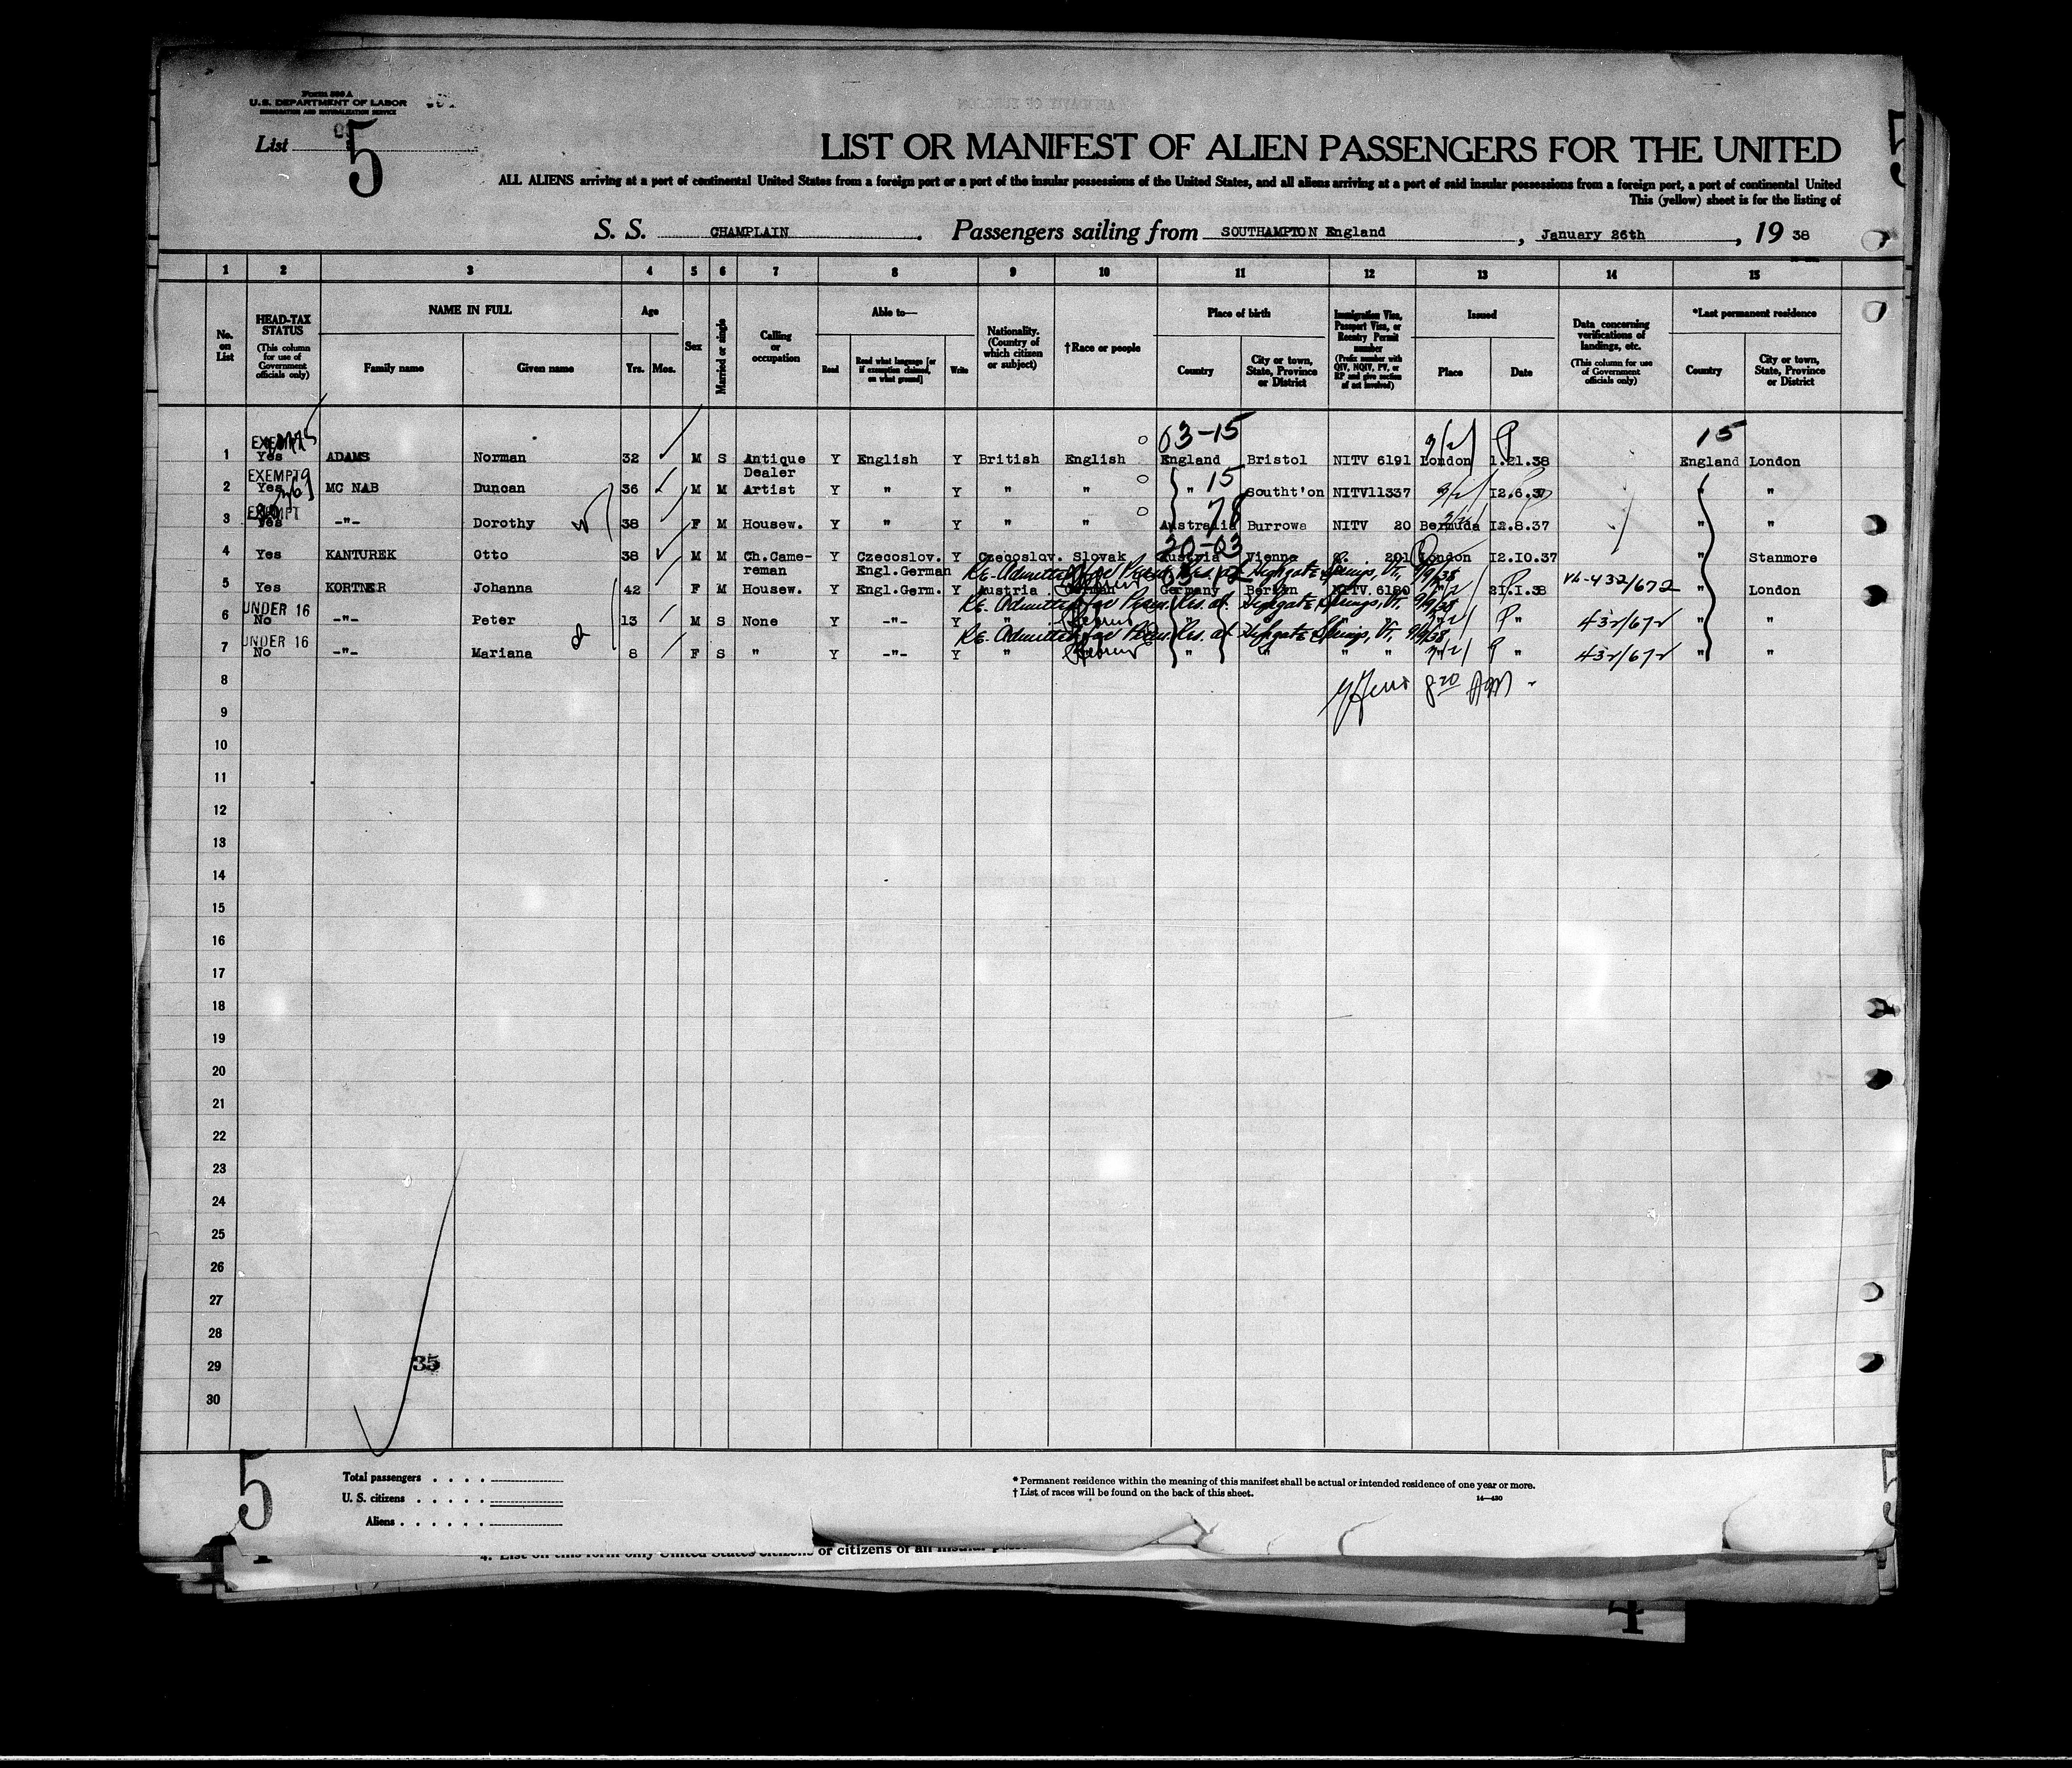 Form 500 A
U.S. DEPARTMENT OF LABOR
IMMIGRATION AND NATURALIZATION SERVICE
List 5
LIST OR MANIFEST OF ALIEN PASSENGERS FOR THE UNITED
ALL ALIENS arriving at a port of continental United States from a foreign port or a port of the insular possessions of the United States, and all aliens arriving at a port of said insular possessions from a foreign port, a port of continental United
This (yellow) sheet is for the listing of
S. S. CHAMPLAIN. Passengers sailing from SOUTHAMPTON England, January 26th, 19 38
1 2 3 4 5 6 7 8 9 10 11 12 13 14 15
No. on List
HEAD-TAX STATUS (This column for use of Government officials only)
NAME IN FULL
Family name Given name
Age
Yrs. Mos.
Sex
Married or single
Calling or occupation
Able to—
Read Read what language [or if exemption claimed, on what ground] Write
Nationality. (Country of which citizen or subject)
†Race or people
Place of birth
Country City or town, State, Province or District
Immigration Visa, Passport Visa, or Reentry Permit number (Prefix number with QIV, NQIV, PV, or RP and give section of act involved)
Issued
Place Date
Data concerning verifications of landings, etc. (This column for use of Government officials only)
*Last permanent residence
Country City or town, State, Province or District
03-15 15
EXEMPT
1 Yes ADAMS Norman 32 M S Antique Dealer Y English Y British English England Bristol NITV 6191 London 1.21.38 England London
EXEMPT
2 Yes MC NAB Duncan 36 M M Artist Y " Y " " " 15 Southt'on NITV11337 12.6.37 " "
EXEMPT
3 Yes -"- Dorothy 38 F M Housew. Y " Y " " Australia 78 Burrowa NITV 20 Bermuda 12.8.37 " "
20-03
4 Yes KANTUREK Otto 38 M M Ch.Came-reman Y Czecoslov. Engl.German Y Czecoslov. Slovak Austria Vienna 201 London 12.10.37 " Stanmore
Re-Admitted for Perm. Res. at Highgate Springs, Vt. 9/9/38
5 Yes KORTNER Johanna 42 F M Housew. Y Engl.Germ. Y Austria German Germany Berlin NITV 6180 " 21.1.38 432/672 " London
Re-Admitted for Perm. Res. at Highgate Springs, Vt. 9/9/38
UNDER 16
6 No -"- Peter 13 M S None Y -"- Y " Hebrew " " " " " " 432/672 " "
Re-Admitted for Perm. Res. at Highgate Springs, Vt. 9/9/38
UNDER 16
7 No -"- Mariana 8 F S " Y -"- Y " Hebrew " " " " " " 432/672 " "
8
9
10
11
12
13
14
15
16
17
18
19
20
21
22
23
24
25
26
27
28
29 35
30
5
Total passengers
U. S. citizens
Aliens
* Permanent residence within the meaning of this manifest shall be actual or intended residence of one year or more.
† List of races will be found on the back of this sheet.
14—430
4. List on this form only United States citizens or citizens of an insular
4